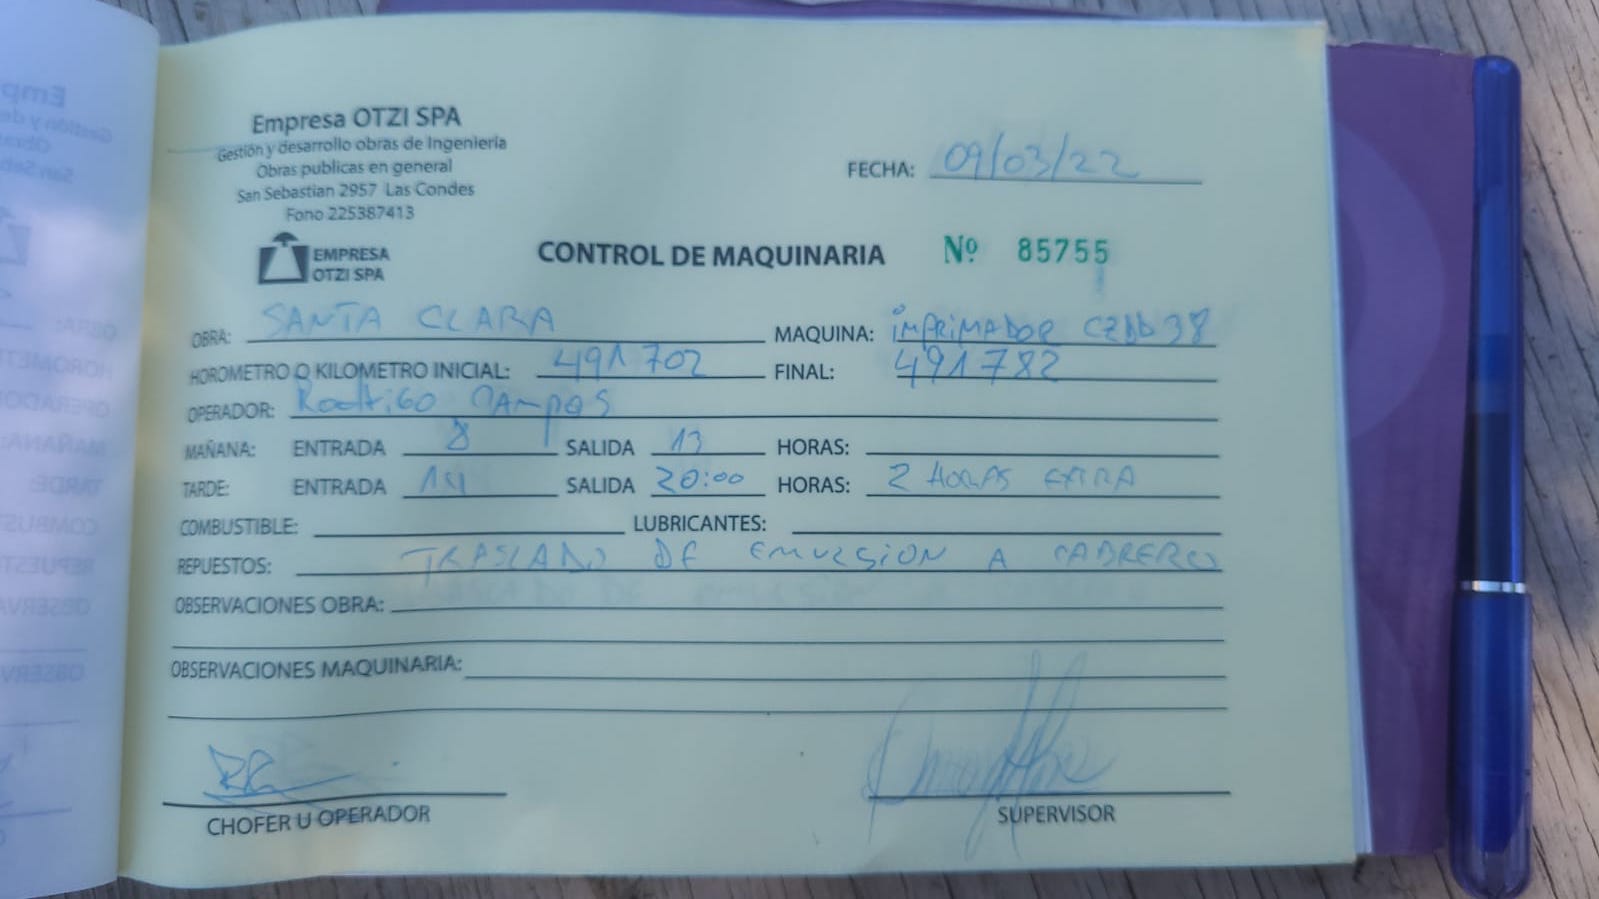 Empresa OTZI SPA
Gestión y desarrollo obras de Ingenieria
Obras publicas en general
San Sebastian 2957 Las Condes
Fono 225387413
EMPRESA
OTZI SPA
FECHA: 09/03/22
CONTROL DE MAQUINARIA Nº 85755
OBRA: SANTA CLARA MAQUINA: imprimador CZDD38
HOROMETRO O KILOMETRO INICIAL: 491702 FINAL: 491782
OPERADOR: Rodrigo Campos
MAÑANA: ENTRADA 8 SALIDA 13 HORAS:
TARDE: ENTRADA 14 SALIDA 20:00 HORAS: 2 HORAS EXTRA
COMBUSTIBLE: LUBRICANTES:
REPUESTOS: TRASLADO DE EMULSION A CABRERO
OBSERVACIONES OBRA:
OBSERVACIONES MAQUINARIA:
CHOFER U OPERADOR SUPERVISOR